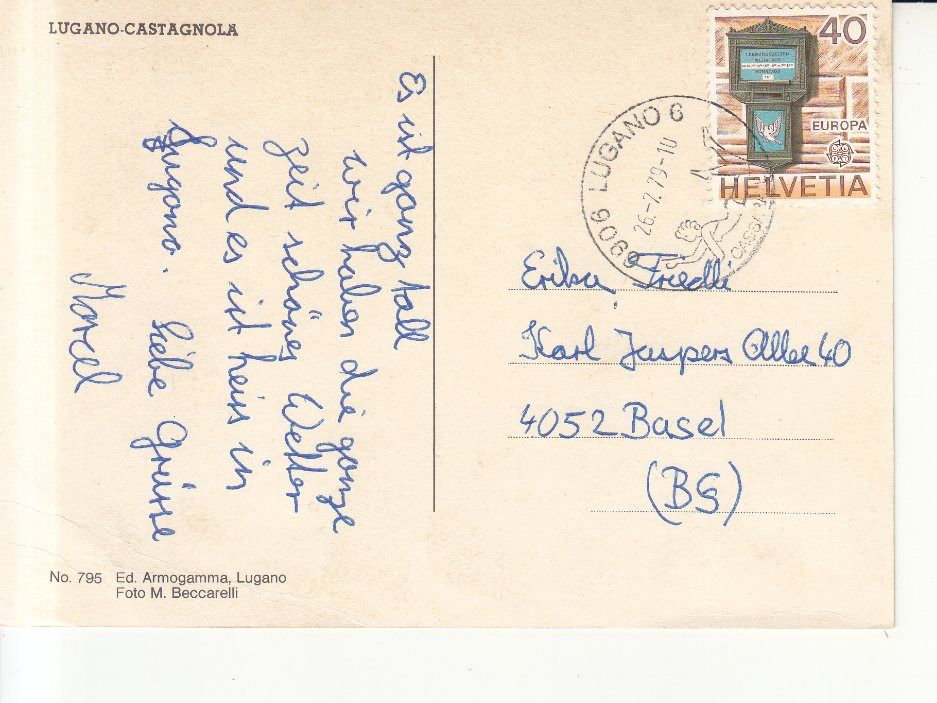 LUGANO-CASTAGNOLA
Es ist ganz toll
wir haben die ganze
zeit schönes Wetter
und es ist heiss in
Lugano. Liebe Grüsse
Marcel
No. 795 Ed. Armogamma, Lugano
Foto M. Beccarelli
40
LEERUNGSZEITEN
WERKTAGS
SONNTAGS
EUROPA
CEPT
HELVETIA
6906 LUGANO 6
26.-7.79-10
CASSA
Erika Friedli
Karl Jaspers Allee 40
4052 Basel
(BS)